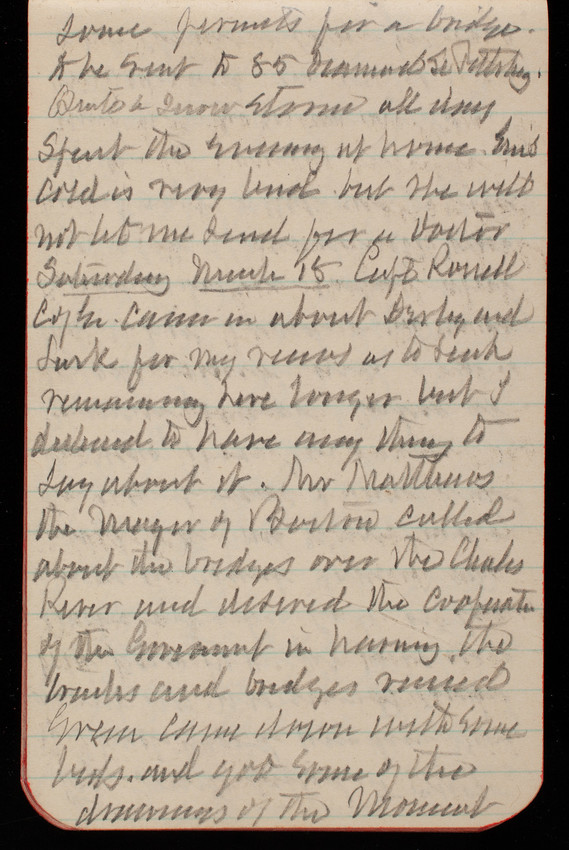 some permits for a bridge.
to be sent to 85 Diamond St Pittsbg.
Quite a snow storm all day
Spent the evening at home.
cold is very bad but she will
not let me send for a Doctor
Saturday March 15. Capt Rossell
came in about Derby and
Lusk for my views as to
remaining here longer but I
declined to have any thing to
say about it. Mr Matthews
the Mayor of Boston called
about the bridges over the Charles
River and desired the cooperation
of the Government in having the
tracks and bridges raised
Green came down with some
bids. and got some of the
drawings of the Monument